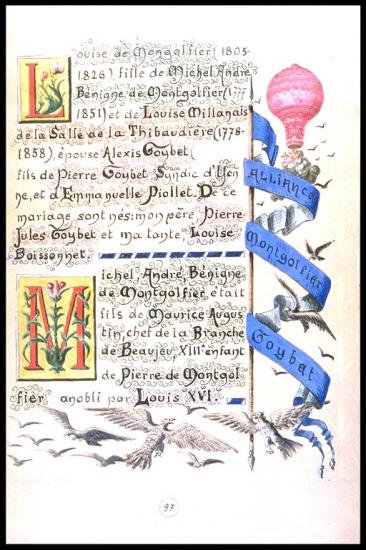 Louise de Mongolfier (1805-
1826) fille de Michel André
Bénigne de Montgolfier (1777
1851) et de Louise Millanais
de la Salle de la Thibaudière (1778-
1858), épouse Alexis Goybet
fils de Pierre Goybet Syndic d'Yen
ne, et d'Emmanuelle Piollet. De ce
mariage sont nés: mon père, Pierre
Jules Goybet et ma tante Louise
Boissonnet.
Michel, André, Bénigne
de Montgolfier était
fils de Maurice Augus
tin, chef de la Branche
de Beaujeu, XIIIe enfant
de Pierre de Montgol
fier anobli par Louis XVI.
Alliance
Montgolfier
Goybet
97